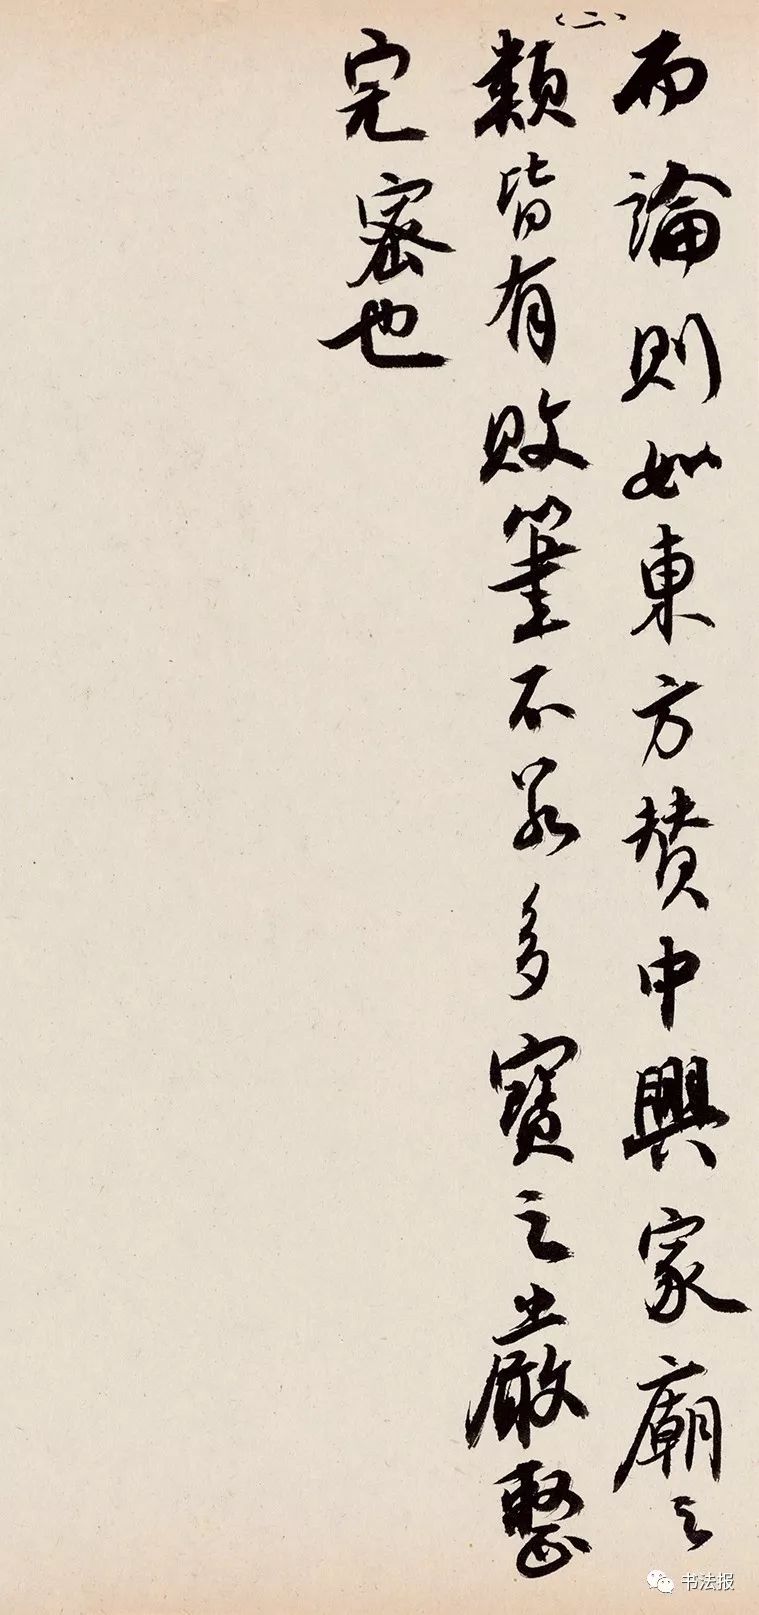 (二)
而論則如東方賛中興家廟之
類皆有敗筆不若多寶之嚴整
完密也
书法报